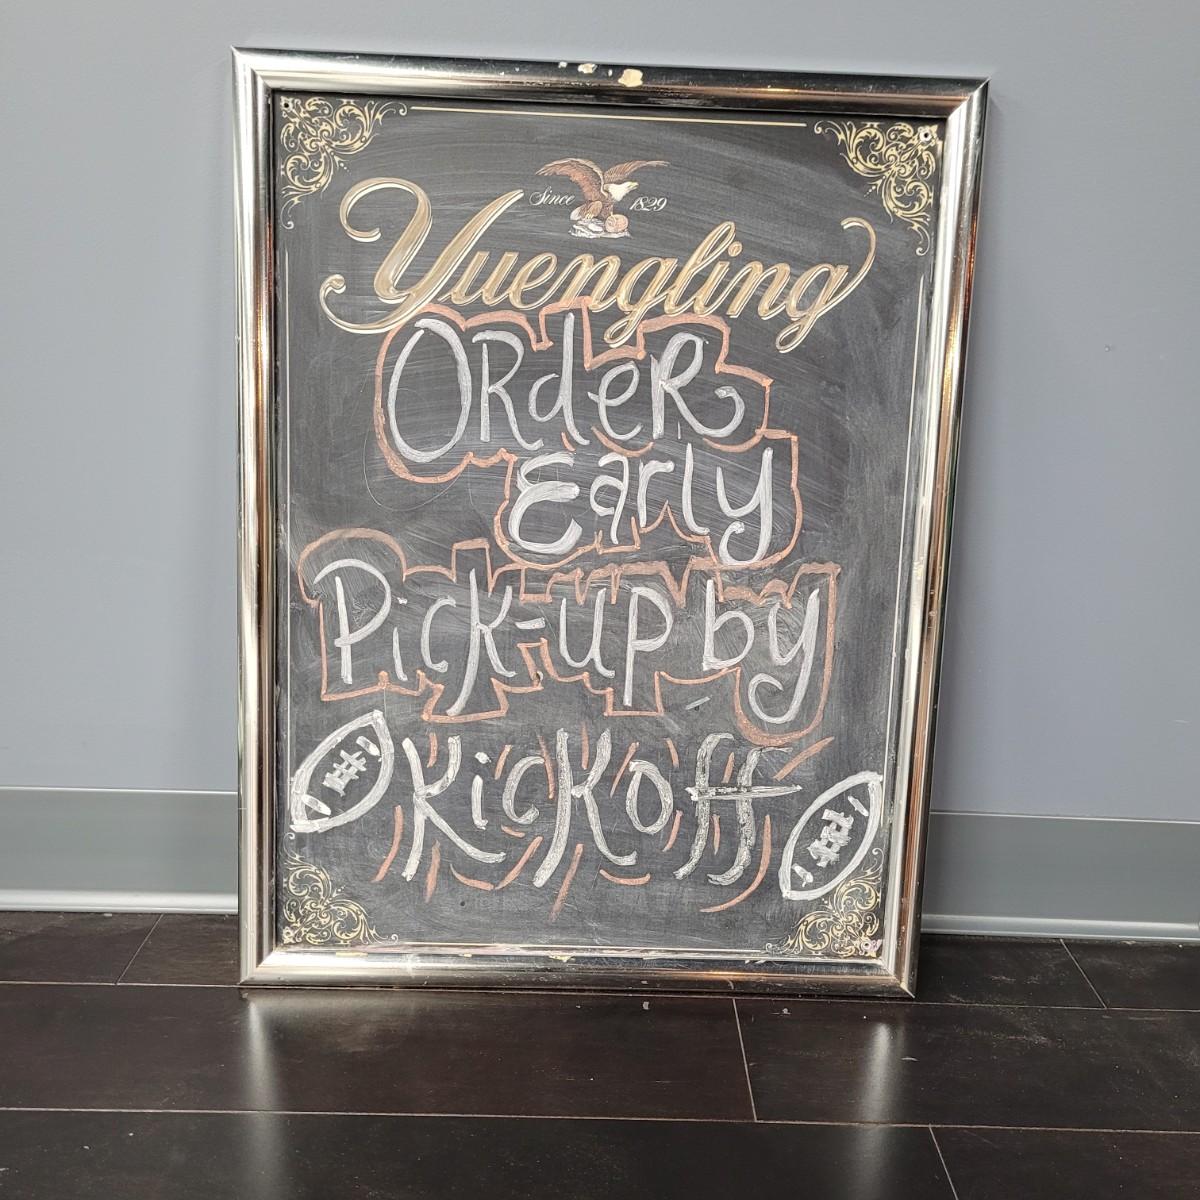 Since 1829
Yuengling
Order
Early
Pick-up by
Kickoff